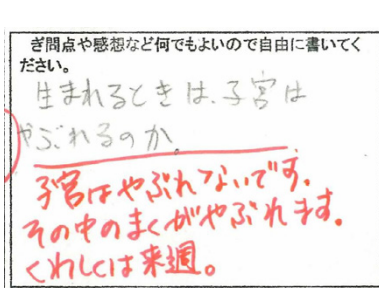 ぎ問点や感想など何でもよいので自由に書いてく
ださい。
生まれるときは、子宮は
やぶれるのか。
子宮はやぶれないです。
その中のまくがやぶれます。
くわしくは来週。